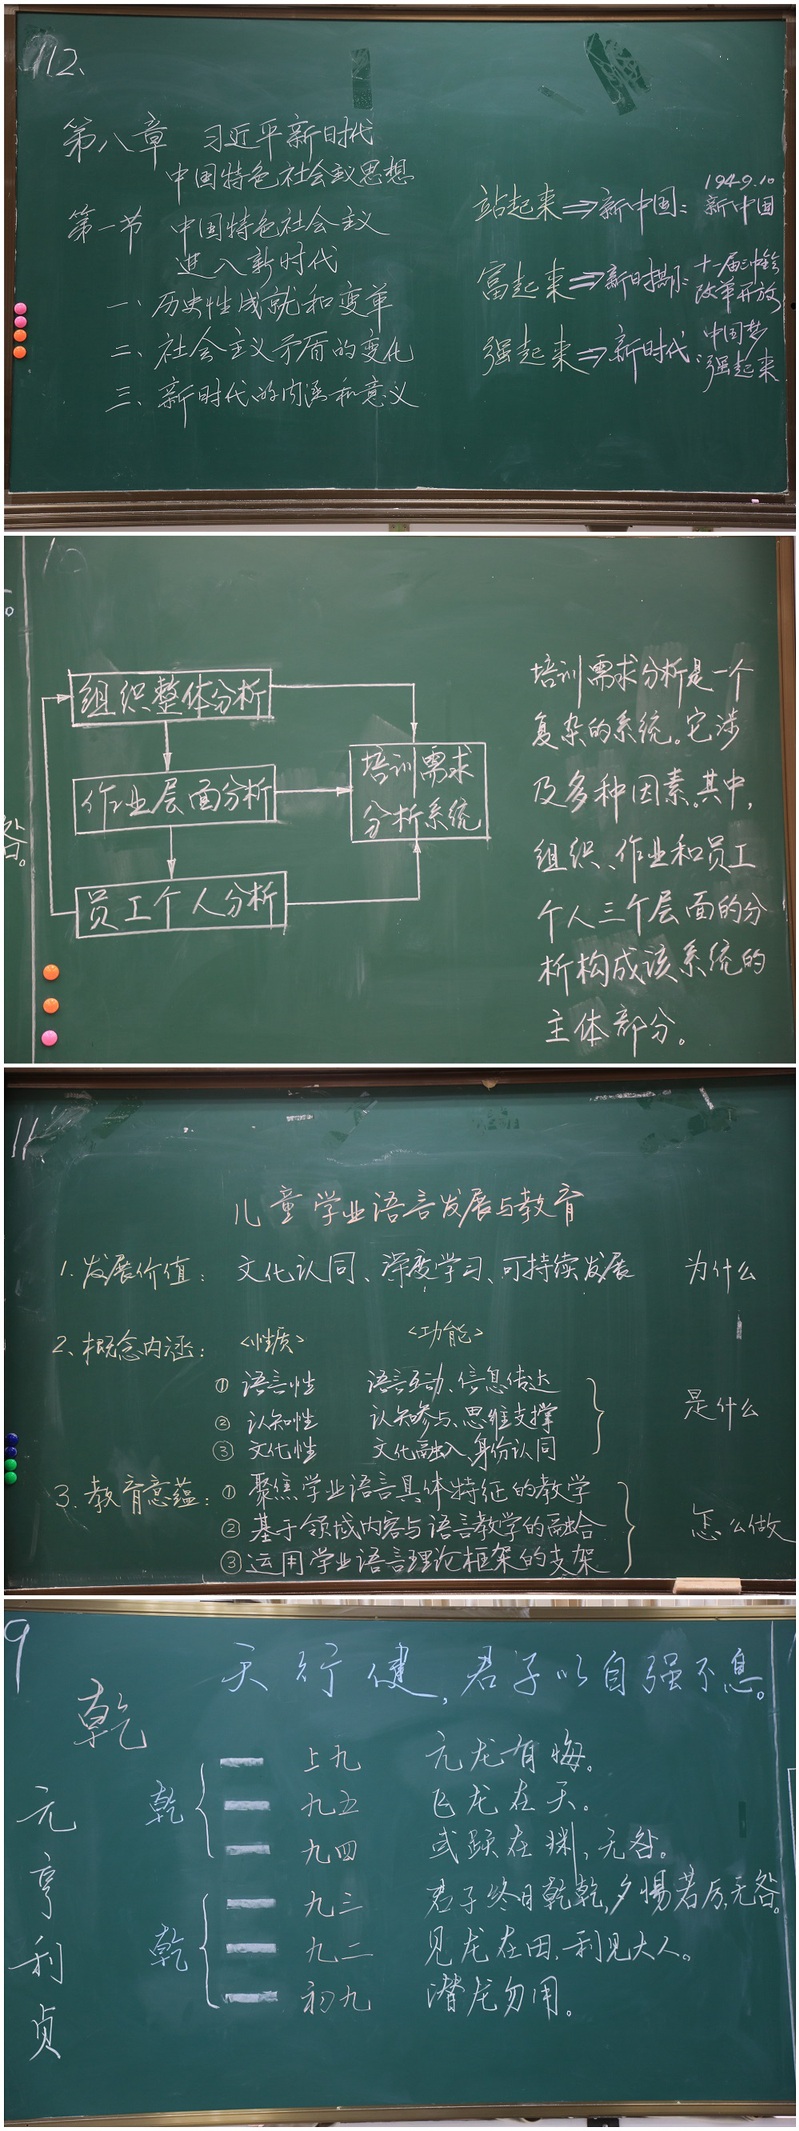 112、
第八章 习近平新时代
中国特色社会主义思想
第一节 中国特色社会主义
进入新时代
一、历史性成就和变革
二、社会主义矛盾的变化
三、新时代的内涵和意义
站起来⇒新中国: 1949.10
新中国
富起来⇒新时期: 十一届三中全会
改革开放
强起来⇒新时代: 中国梦
强起来
组织整体分析
作业层面分析
员工个人分析
培训需求
分析系统
培训需求分析是一个
复杂的系统。它涉
及多种因素。其中,
组织、作业和员工
个人三个层面的分
析构成该系统的
主体部分。
11.
儿童学业语言发展与教育
1.发展价值: 文化认同、深度学习、可持续发展 为什么
2、概念内涵: <性质> <功能>
① 语言性 语言互动、信息传达
② 认知性 认知参与、思维支撑 是什么
③ 文化性 文化融入、身份认同
3.教育意蕴: ① 聚焦学业语言具体特征的教学
② 基于领域内容与语言教学的融合 怎么做
③ 运用学业语言理论框架的支架
9
天行健,君子以自强不息。
乾
元亨利贞
乾
上九 亢龙有悔。
九五 飞龙在天。
九四 或跃在渊,无咎。
乾
九三 君子终日乾乾,夕惕若厉,无咎。
九二 见龙在田,利见大人。
初九 潜龙勿用。